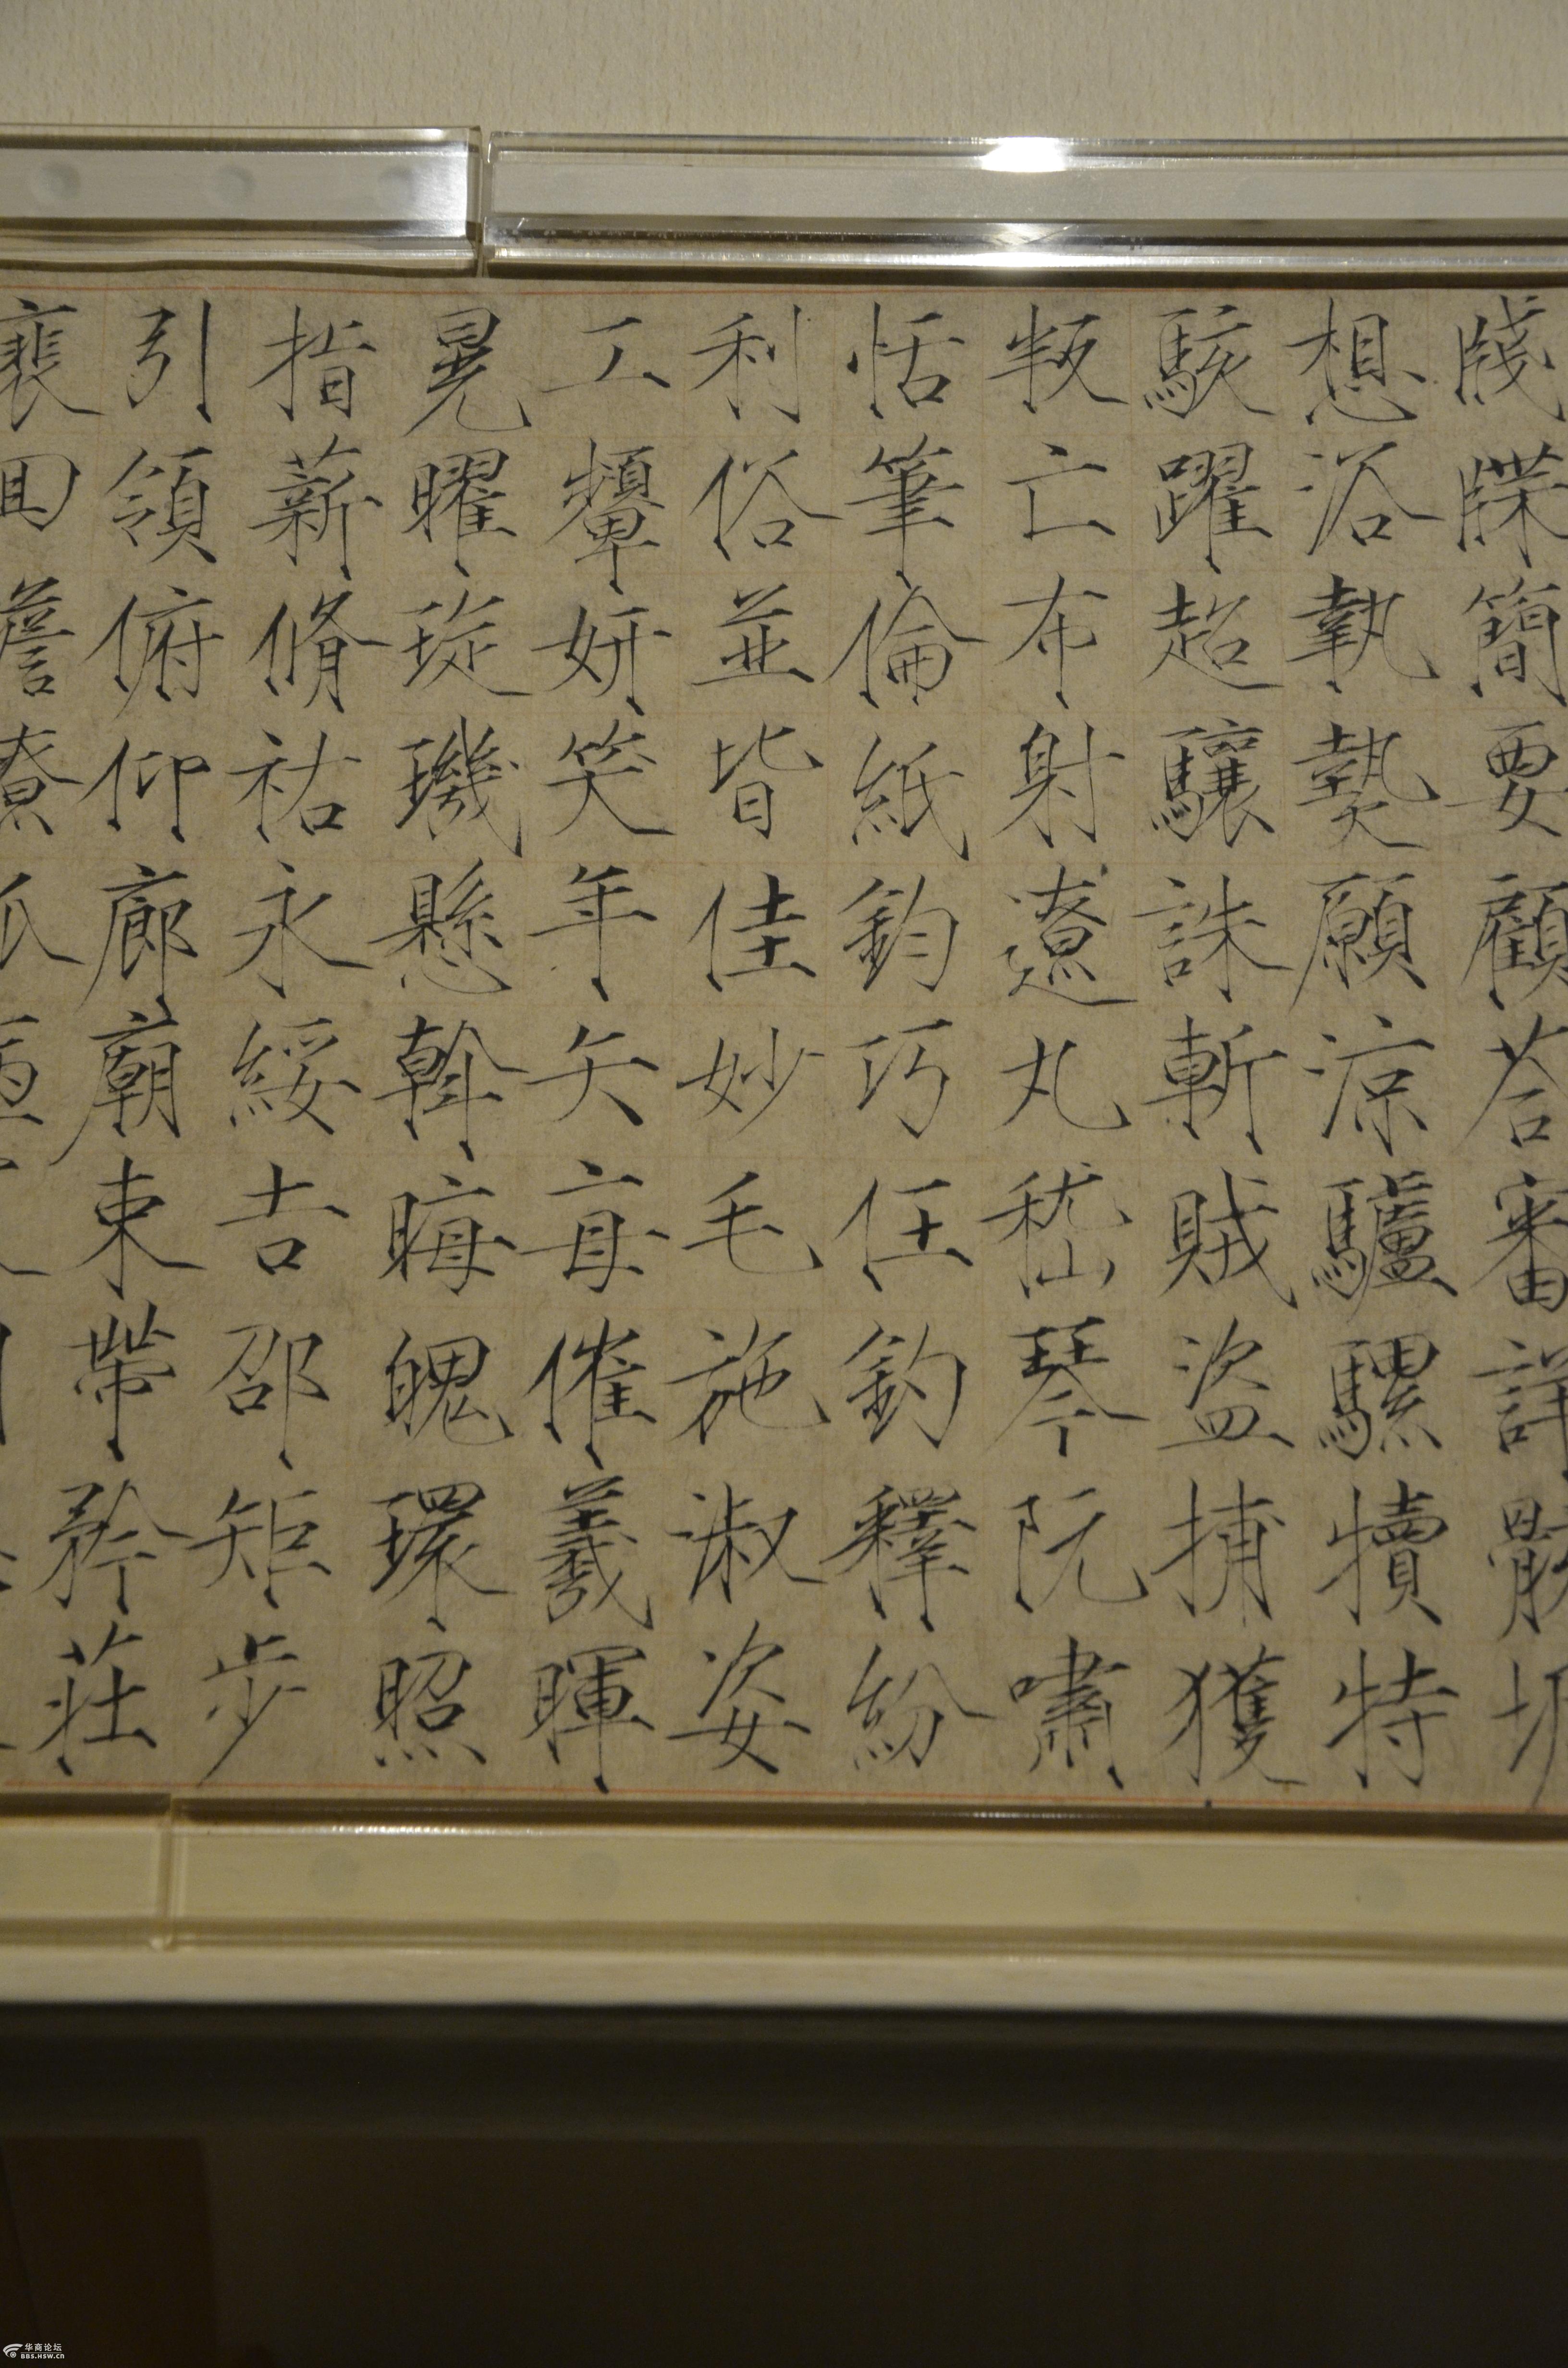 牋牒簡要顧荅審詳骸垢
想浴執熱願涼驢騾犢特
駭躍超驤誅斬賊盜捕獲
叛亡布射遼丸嵇琴阮嘯
恬筆倫紙鈞巧任釣釋紛
利俗並皆佳妙毛施淑姿
工顰妍笑年矢每催羲暉
晃曜琁璣懸斡晦魄環照
指薪脩祐永綏吉邵矩步
引領俯仰廊廟束帶矜莊
裵回
华商论坛
BBS.HSW.CN